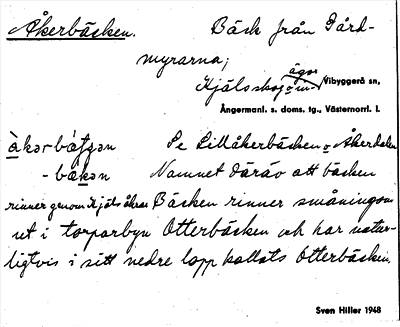 Åkerbäcken. Bäck från Gård-
myrarna;
ägor
Kjälsskog o in- Vibyggerå sn,
Ångermanl. s. doms. tg., Västernorrl. l.
Se Lillåkerbäcken o Åkerdalen
Namnet därav att bäcken
rinner genom Kjäls åkrar Bäcken rinner småningom
ut i torparbyn Otterbäcken och har natur-
ligtvis i sitt nedre lopp kallats Otterbäcken.
Sven Hiller 1948